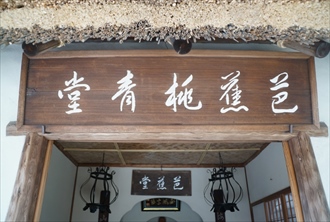 芭蕉桃青堂
芭蕉堂